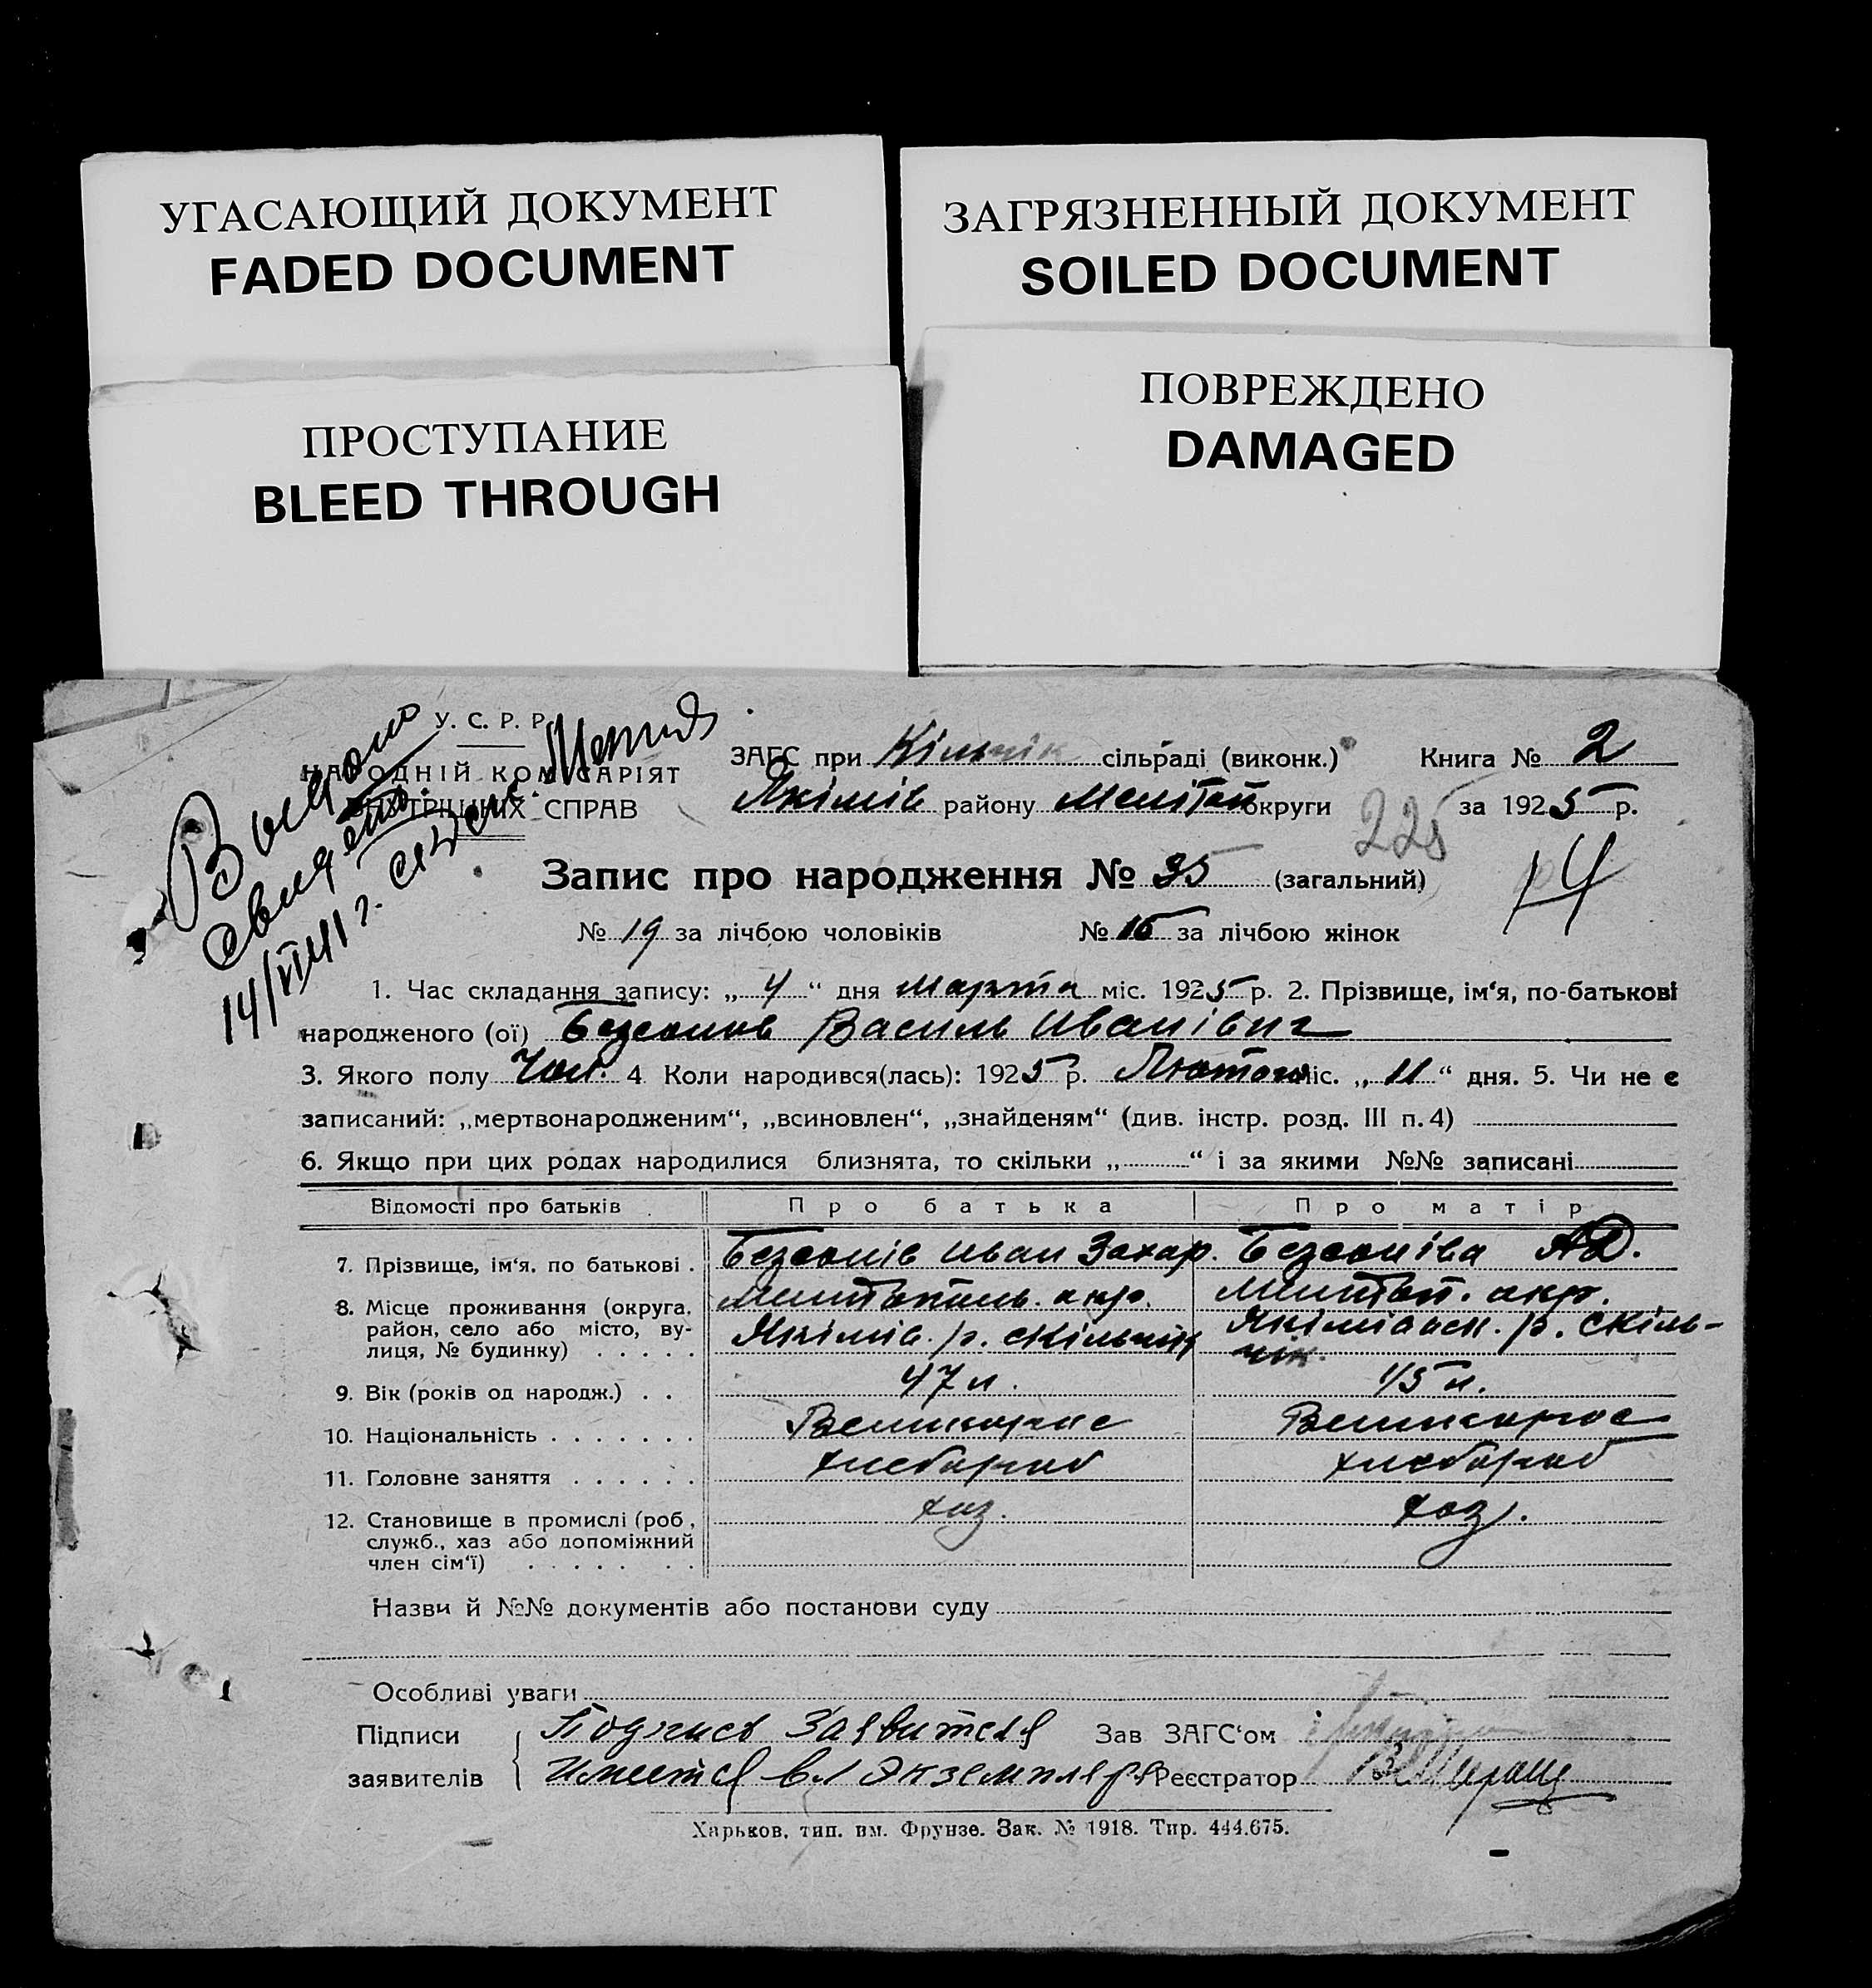 УГАСАЮЩИЙ ДОКУМЕНТ
FADED DOCUMENT
ЗАГРЯЗНЕННЫЙ ДОКУМЕНТ
SOILED DOCUMENT
ПРОСТУПАНИЕ
BLEED THROUGH
ПОВРЕЖДЕНО
DAMAGED
У. С. Р. Р.
НАРОДНІЙ КОМІСАРІЯТ
ВНУТРІШНІХ СПРАВ
Выдано
свидет.
14/VI 41 г.
ЗАГС при Кільчік сільраді (виконк.) Книга № 2
Якімів району Мелітоп округи за 1925 р.
225
14
Запис про народження № 35 (загальний)
№ 19 за лічбою чоловіків № 16 за лічбою жінок
1. Час складання запису: „ 4 “ дня Марта міс. 1925 р. 2. Прізвище, ім‘я, по-батькові
народженого (ої) Безсонов Василь Иванівич
3. Якого полу Чол. 4 Коли народився(лась): 1925 р. Лютого міс. „ 11 “ дня. 5. Чи не є
записаний: „мертвонародженим“, „всиновлен“, „знайденям“ (див. інстр. розд. III п. 4)
6. Якщо при цих родах народилися близнята, то скільки „ “ і за якими №№ записані
Відомості про батьків Про батька Про матір
7. Прізвище, ім‘я, по батькові . Безсонів Иван Захар. Безсоніва А.Д.
8. Місце проживання (округа, район, село або місто, вулиця, № будинку) Мелитополь. окр. Якімів. р. с Кільчік Мелитоп. окр. Якімівск. р. с Кільчік.
9. Вік (років од народж.) . . 47 л. 45 л.
10. Національність Великорос Великорос
11. Головне заняття хлебороб хлебороб
12. Становище в промислі (роб., служб., хаз або допоміжний член сім‘ї) хаз. хаз.
Назви й №№ документів або постанови суду
Особливі уваги
Підписи Подпись Заявителя Зав ЗАГС‘ом
заявителів Имеется в 1 Экземпляре Реєстратор
Харьков, тип. им. Фрунзе. Зак. № 1918. Тир. 444.675.